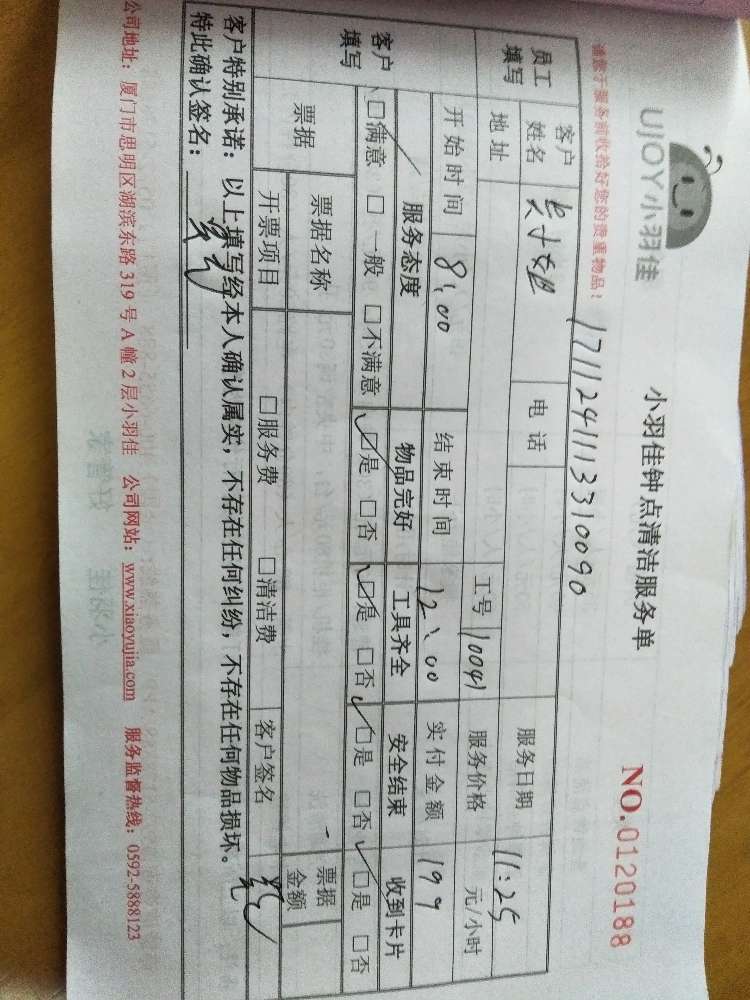 UJOY小羽佳
小羽佳钟点清洁服务单
NO.0120188
请您于服务前收拾好您的贵重物品!
1711241113310090
员工填写 客户姓名 电话 服务日期 11:25
地址 工号 10041 服务价格 元/小时
开始时间 8:00 结束时间 12:00 实付金额 199
客户填写 服务态度 物品完好 工具齐全 安全结束 收到卡片
☑满意 □一般 □不满意 ☑是 □否 ☑是 □否 ☑是 □否 ☑是 □否
票据 票据名称 票据金额
开票项目 □服务费 □清洁费 客户签名
客户特别承诺：以上填写经本人确认属实，不存在任何纠纷，不存在任何物品损坏。
特此确认签名：
公司地址：厦门市思明区湖滨东路319号A幢2层小羽佳 公司网站：www.xiaoyujia.com 服务监督热线：0592-5888123